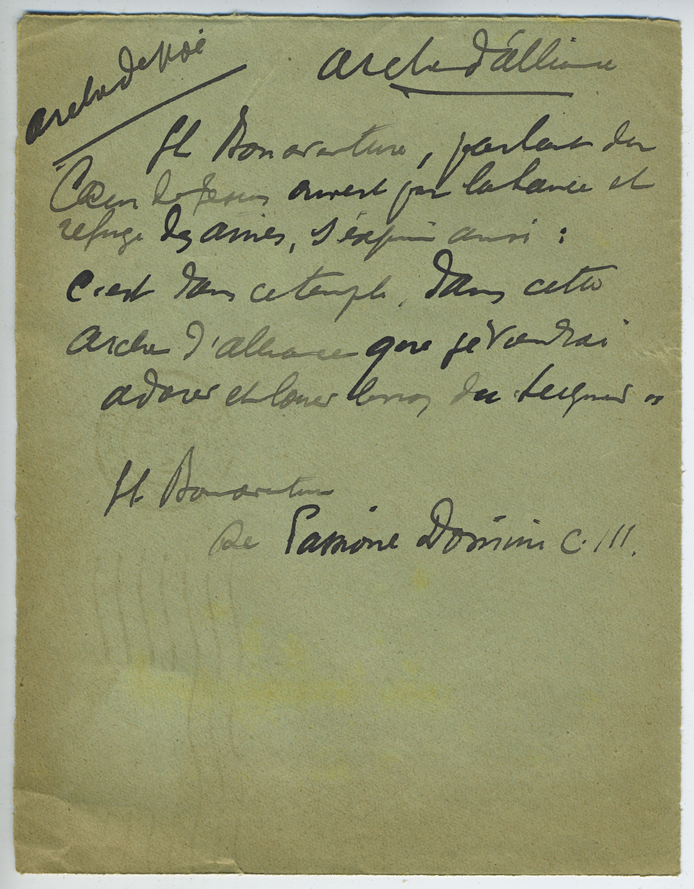 arche d'alliance
St Bonaventure, parlant du
Cœur de Jesus ouvert par la lance et
refuge des ames, s'exprime ainsi :
c'est dans ce temple, dans cette
arche d'alliance que je viendrai
adorer et louer le nom du Seigneur »
St Bonaventure
de Passione Domini C. III.